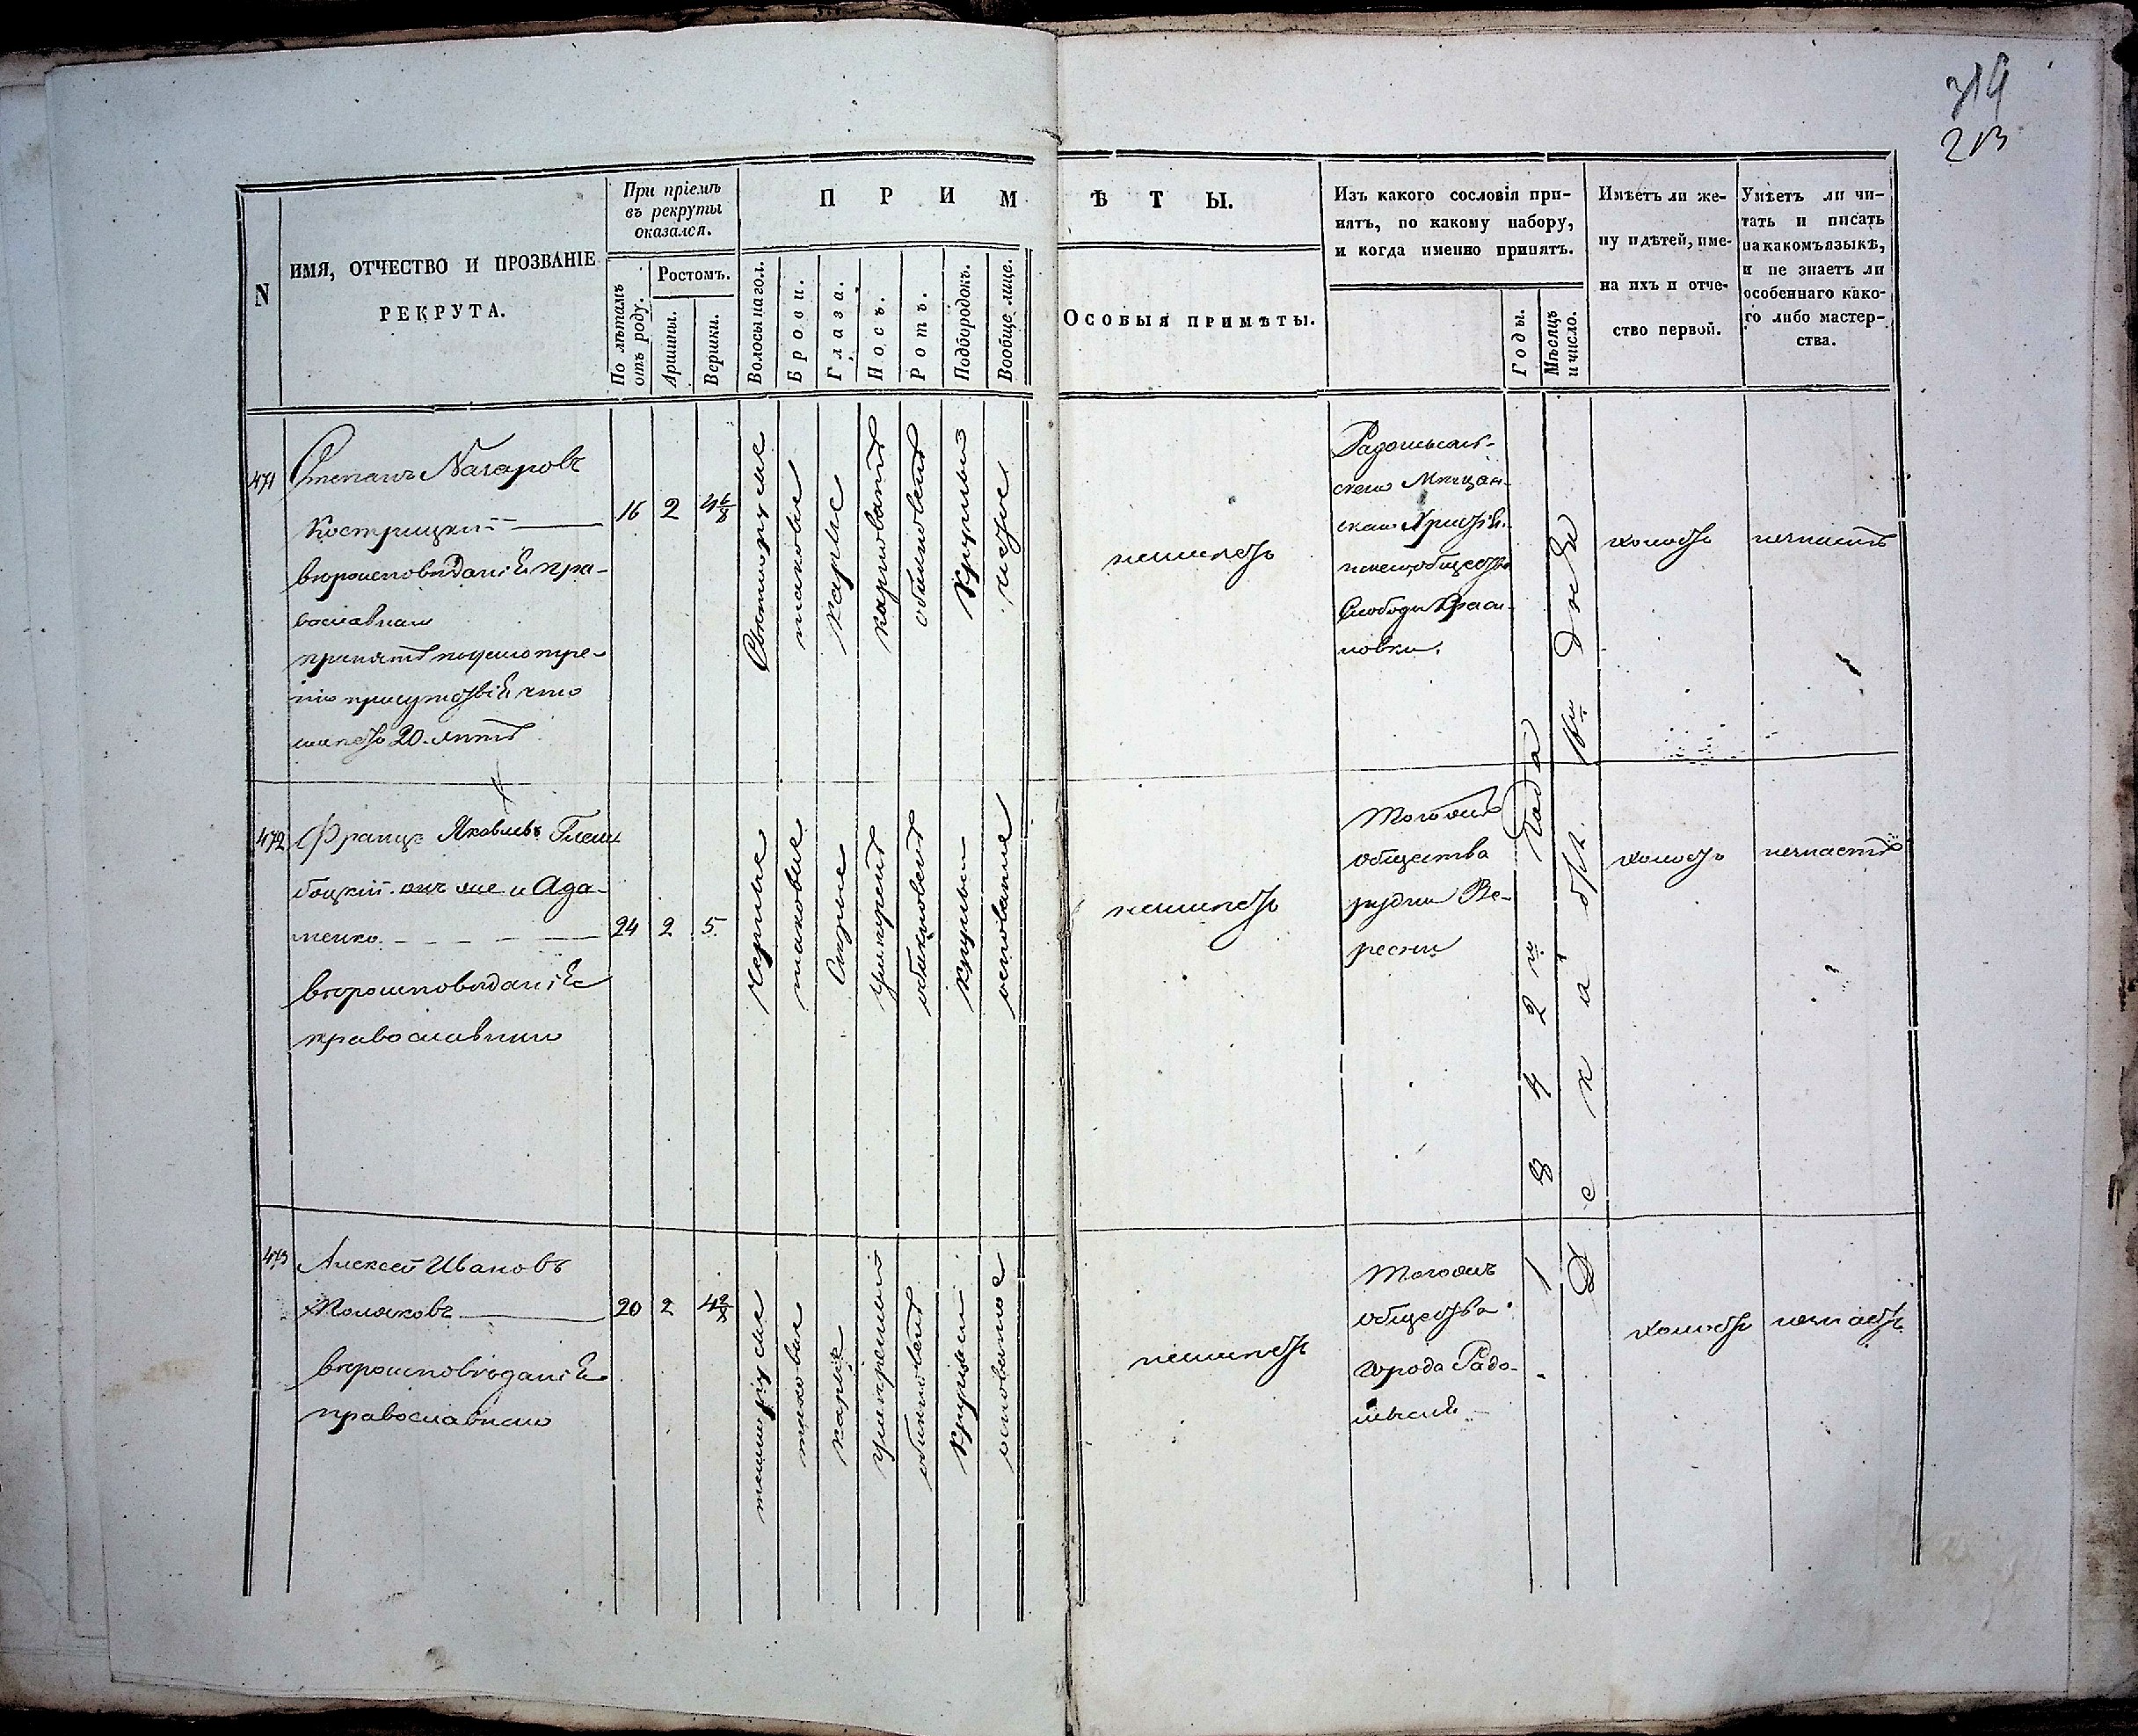 319
213
N
ИМЯ, ОТЧЕСТВО И ПРОЗВАНІЕ
РЕКРУТА.
При пріемѣ
въ рекруты
оказался.
По лѣтамъ
отъ роду.
Ростомъ.
Аршины.
Вершки.
ПРИМѢТЫ.
Волосы на гол.
Брови.
Глаза.
Носъ.
Ротъ.
Подбородокъ.
Вообще лице.
ОСОБЫЯ ПРИМѢТЫ.
Изъ какого сословія при-
нятъ, по какому набору,
и когда именно принятъ.
Годы.
Мѣсяцъ
и число.
Имѣетъ ли же-
ну и дѣтей, име-
на ихъ и отче-
ство первой.
Умѣетъ ли чи-
тать и писать
на какомъ языкѣ,
и не знаетъ ли
особеннаго како-
го либо мастер-
ства.
471
Степанъ Назаровъ
Кострицкий
вероисповѣданія пра-
вославнаго
принятъ по усмотре-
нію присутствія что
имѣетъ 20 лѣтъ
16
2
4 6/8
Светлорусые
таковые
карие
обыкновенъ
круглый
чистое
неимѣетъ
Радомысль-
скаго Мещан-
скаго Христіян-
скаго общества
Слободы
новки.
холостъ
незнаетъ
472
Францъ Яковлевъ
боцкий онъ же и Ада-
менко.
вероисповѣданія
православнаго
24
2
5.
Черные
таковые
Серые
умеренъ
обыкновенъ
круглый
неимѣетъ
Тогожъ
общества
рудни Бе-
рестки
холостъ
незнаетъ
473
Алексей Ивановъ
Поляковъ
вероисповѣданія
православнаго
20
2
4 2/8
темнорусые
таковые
карые
умеренный
обыкновенъ
круглый
неимѣетъ
Тогожъ
общества
города Радо-
мысля
1842го Года
Декабря 16го дня
холостъ
незнаетъ